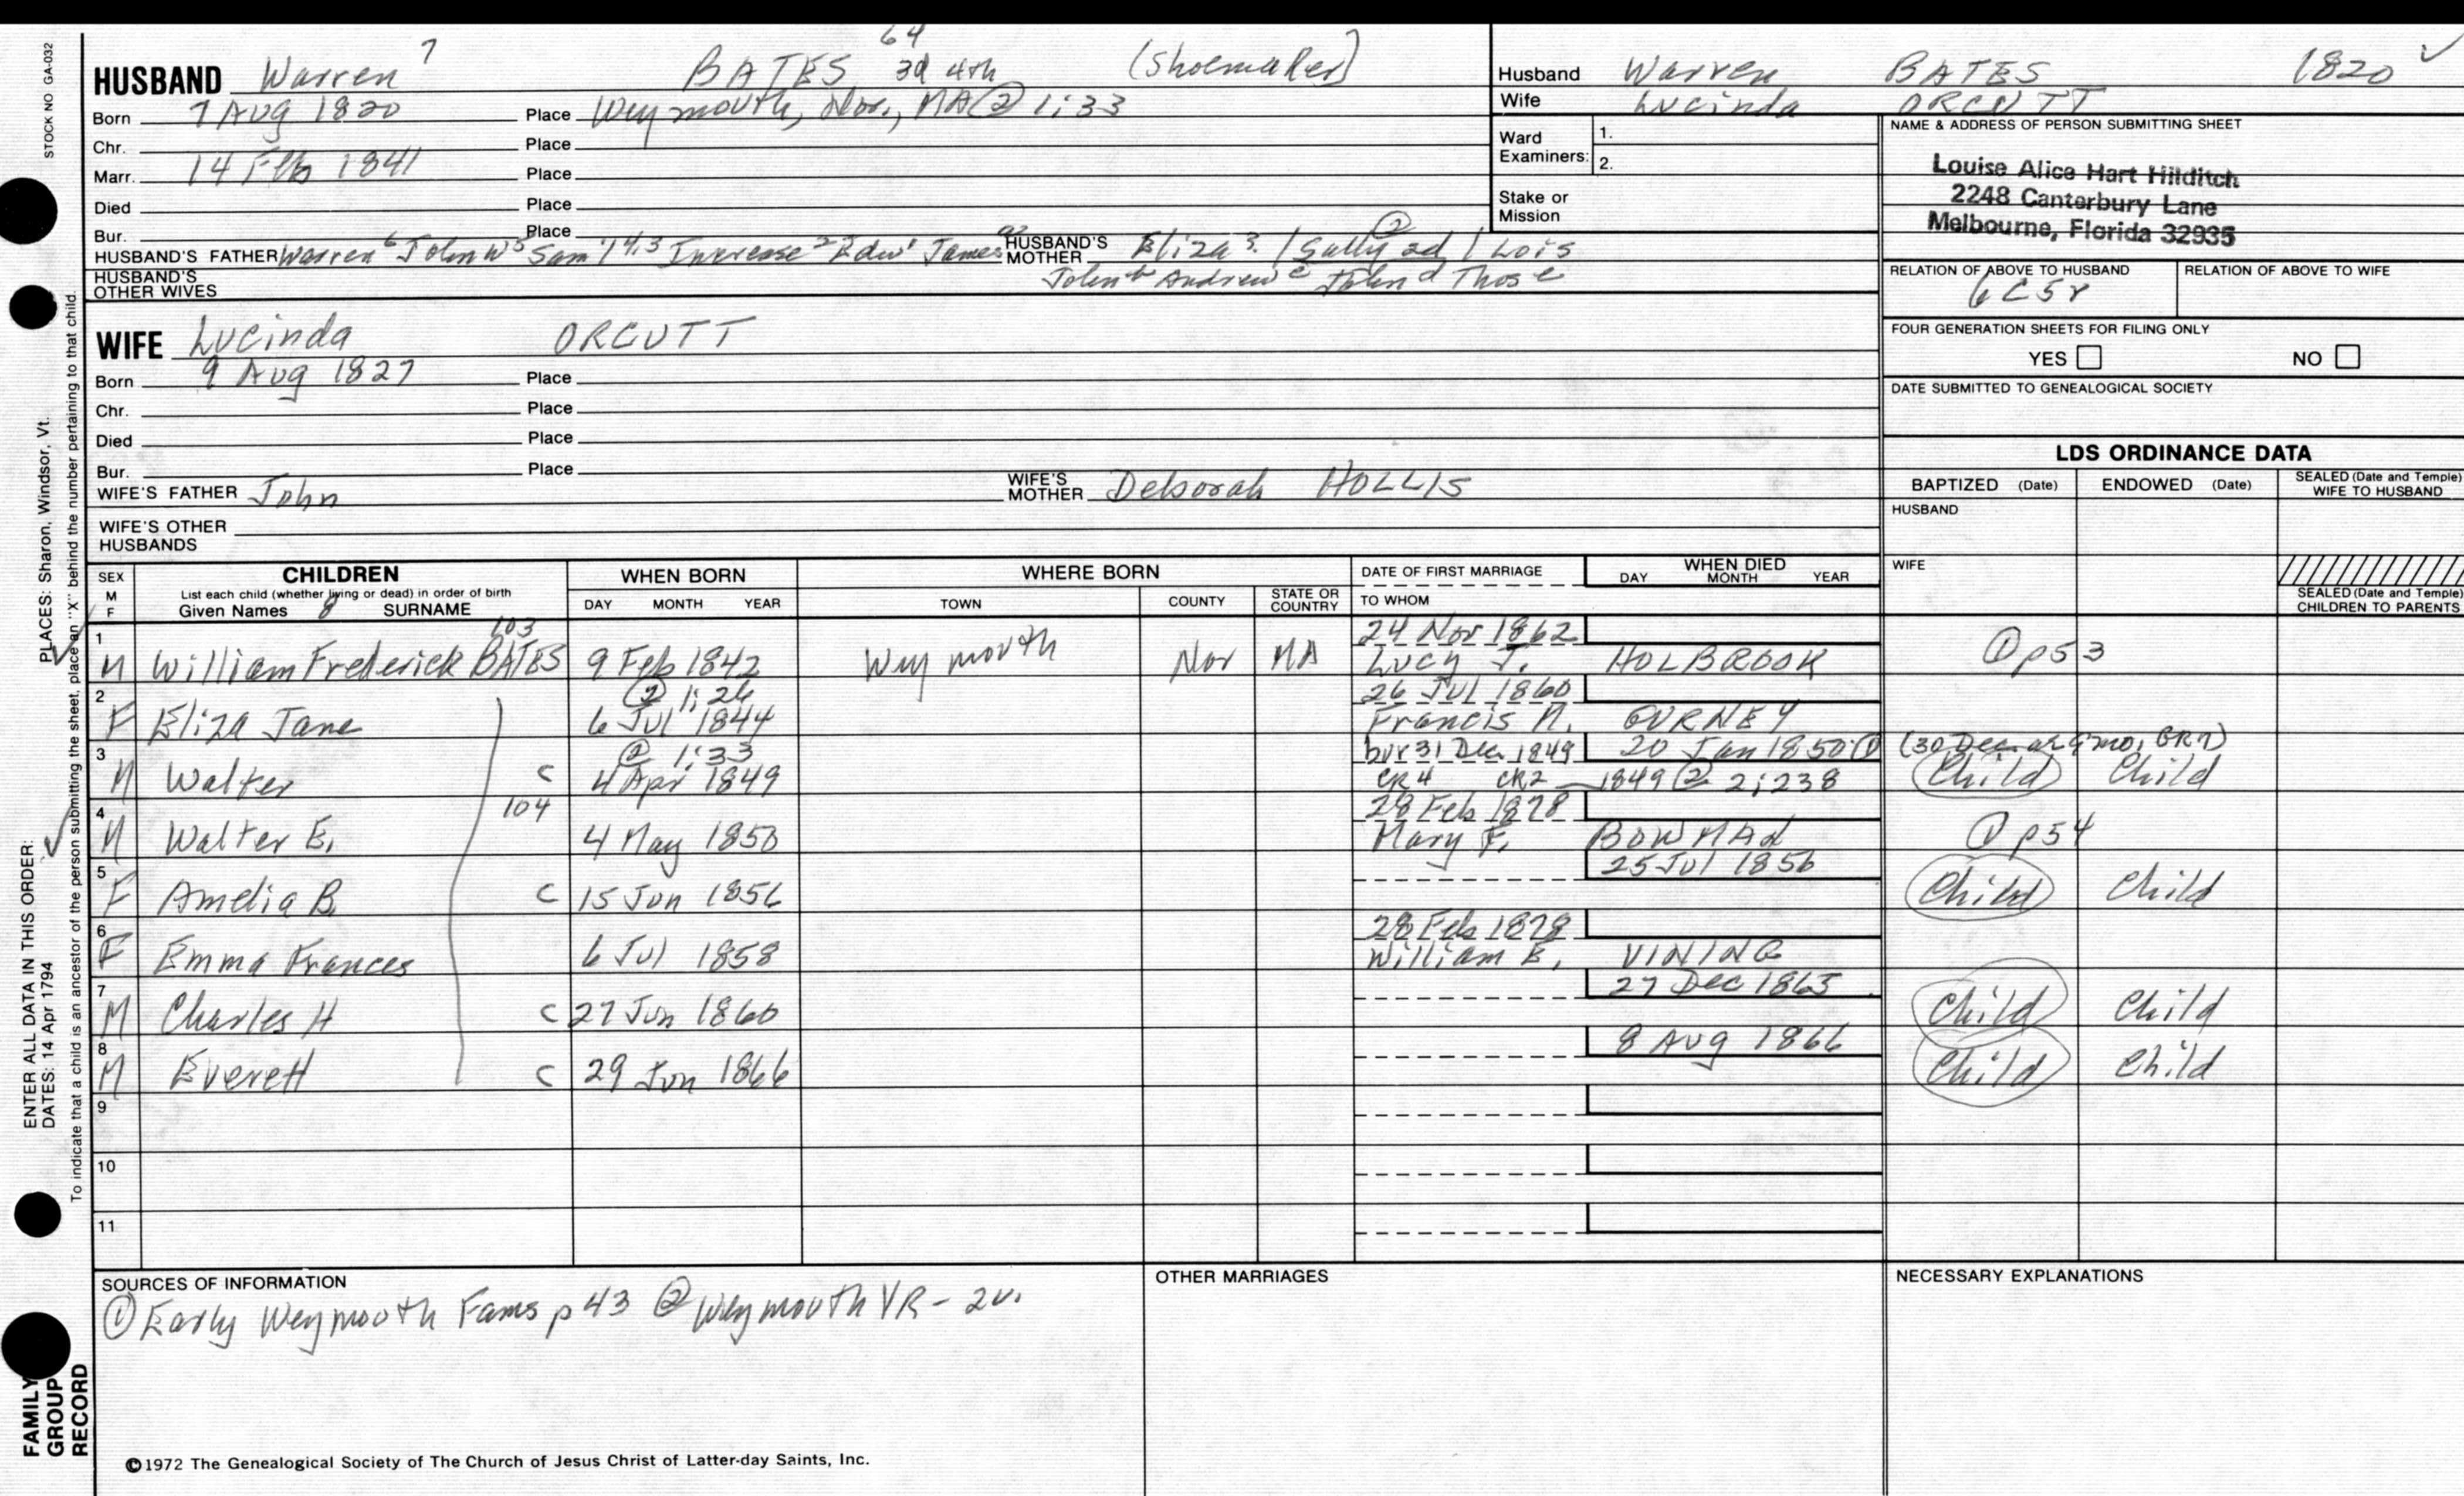 STOCK NO GA-032
64
HUSBAND Warren 7 BATES 3d 4th (Shoemaker)
Born 7 Aug 1820 Place Weymouth, Nor., MA @ 1:33
Chr. Place
Marr. 14 Feb 1841 Place
Died Place
Bur. Place
HUSBAND'S FATHER Warren 6 John W 5 Sam'l 4,3 Increase 2 Edw 1 James HUSBAND'S MOTHER Eliza 3. / Sally ad / Lois
HUSBAND'S OTHER WIVES John b Andrew c John d Thos e
Husband Warren BATES 1820 ✓
Wife Lucinda ORCUTT
Ward Examiners: 1.
2.
Stake or Mission
NAME & ADDRESS OF PERSON SUBMITTING SHEET
Louise Alice Hart Hilditch
2248 Canterbury Lane
Melbourne, Florida 32935
RELATION OF ABOVE TO HUSBAND RELATION OF ABOVE TO WIFE
6C5r
FOUR GENERATION SHEETS FOR FILING ONLY
YES NO
DATE SUBMITTED TO GENEALOGICAL SOCIETY
WIFE Lucinda ORCUTT
Born 9 Aug 1827 Place
Chr. Place
Died Place
Bur. Place
WIFE'S FATHER John WIFE'S MOTHER Deborah HOLLIS
WIFE'S OTHER HUSBANDS
LDS ORDINANCE DATA
BAPTIZED (Date) ENDOWED (Date) SEALED (Date and Temple) WIFE TO HUSBAND
HUSBAND
WIFE
SEALED (Date and Temple) CHILDREN TO PARENTS
SEX M F CHILDREN WHEN BORN WHERE BORN DATE OF FIRST MARRIAGE WHEN DIED
List each child (whether living or dead) in order of birth
Given Names 8 SURNAME DAY MONTH YEAR TOWN COUNTY STATE OR COUNTRY TO WHOM DAY MONTH YEAR
103 24 Nov 1862
1 M William Frederick BATES 9 Feb 1842 Weymouth Nor MA Lucy J. HOLBROOK ① p53
② 1:26 26 Jul 1860
2 F Eliza Jane 6 Jul 1844 Francis M. GURNEY
② 1:33 bur 31 Dec 1849 20 Jan 1850 ① (30 Dec. ag 9 mo, GR7)
3 M Walter c 4 Apr 1849 CR4 CR2 1849 ② 2:238 Child Child
104 28 Feb 1878
4 M Walter E. 4 May 1850 Mary F. BOWMAN ① p54
25 Jul 1856
5 F Amelia B. c 15 Jun 1856 Child Child
28 Feb 1878
6 F Emma Frances 6 Jul 1858 William E. VINING
27 Dec 1865
7 M Charles H c 27 Jun 1860 Child Child
8 Aug 1866
8 M Everett c 29 Jun 1866 Child Child
9
10
11
SOURCES OF INFORMATION
① Early Weymouth Fams p 43 ② Weymouth VR - 2v.
OTHER MARRIAGES
NECESSARY EXPLANATIONS
PLACES: Sharon, Windsor, Vt.
ENTER ALL DATA IN THIS ORDER:
DATES: 14 Apr 1794
To indicate that a child is an ancestor of the person submitting the sheet, place an "X" behind the number pertaining to that child.
FAMILY GROUP RECORD
©1972 The Genealogical Society of The Church of Jesus Christ of Latter-day Saints, Inc.